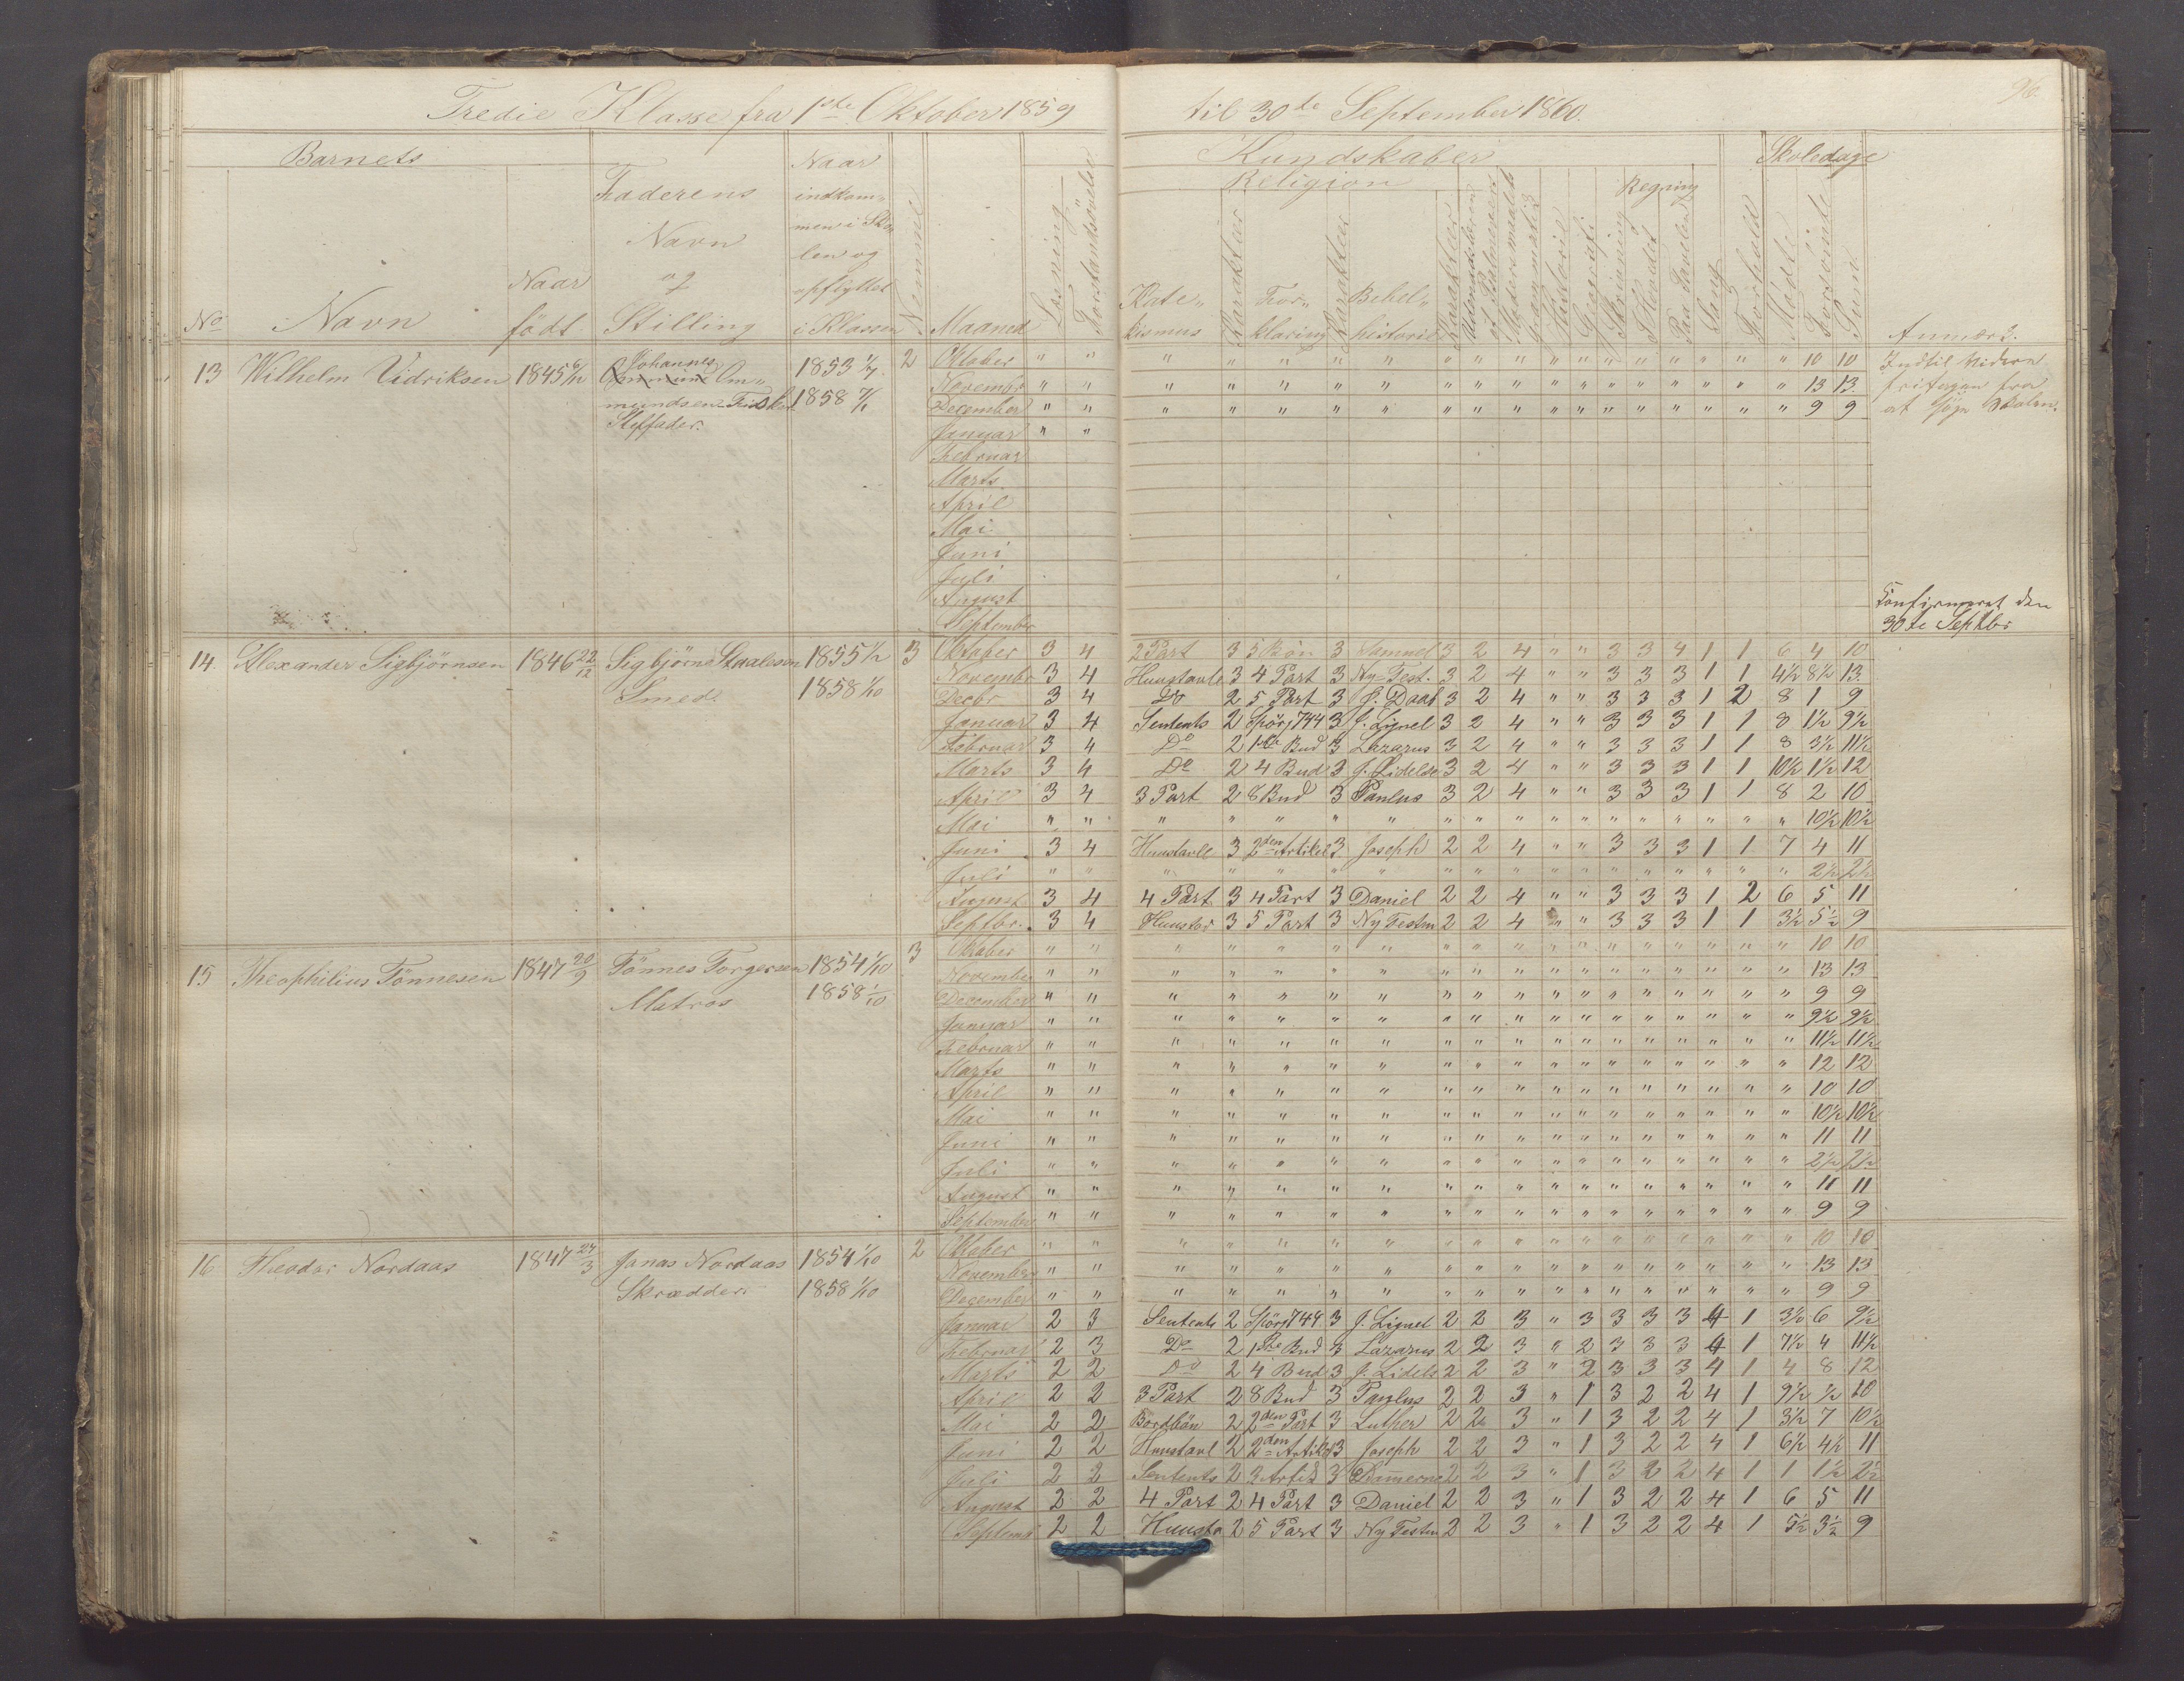 Tredie Klasse fra 1ste Oktober 1859 til 30te September 1860.
96.
Barnets
Faderens Navn og Stilling
Naar indkommen i Skolen og opflyttet i Klassen
Kundskaber
Skoledage
Religion
Regning
No Navn Naar født Nemmel Maaned Læsning Forstandsøvelse
Katekismus Karakter Forklaring Karakter Bibelhistorie Karakter
Modersmaal Grammatik Historie Geografi Skrivning Hovedet Paa Tavlen Sang Forhold Mødte Forsømte Sum
Anmærk.
13 Wilhelm Vidriksen 1845 Johannes Ommundsen Fisker Stiffader. 1853 1/7. 1858 2
Oktober " " " " " " " " " " " " " " " " " " " 10 10
November " " " " " " " " " " " " " " " " " " " 13 13.
December " " " " " " " " " " " " " " " " " " " 9 9
Januar " "
Februar
Marts
April
Mai
Juni
Juli
August
September
Indtil videre
fritagen fra
at søge Skolen.
Confirmeret den
30te Septbr
14. Alexander Sigbjørnsen 1846 22/12 Sigbjørn Staalesen Smed. 1855 1/2 1858 1/10 3
Oktober 3 4 2 Part 3 5 Bøn 3 Samuel 3 2 4 " " 3 3 4 1 1 6 4 10
Novembr 3 4 Huustavle 3 4 Part 3 Ny Test. 3 2 4 " " 3 3 3 1 1 4½ 8½ 13.
Decbr 3 4 Do 2 5 Part 3 J. Daab 3 2 4 " " 3 3 3 1 2 8 1 9
Januar 3 4 Sentents 2 Spörj 744 3 J. Lignel 3 2 4 " " 3 3 3 1 1 8 1½ 9½
Februar 3 4 Do 2 1ste Bud 3 Lazarus 3 2 4 " " 3 3 3 1 1 8 3½ 11½
Marts 3 4 Do 2 4 Bud 3 J. Lidelse 3 2 4 " " 3 3 3 1 1 10½ 1½ 12
April 3 4 3 Part 2 8 Bud 3 Paulus 3 2 4 " " 3 3 3 1 1 8 2 10
Mai " " " " " " " " " " " " " " " " " " " 10½ 10½
Juni 3 4 Huustavle 3 2den Artikel 3 Joseph 2 2 4 " " 3 3 3 1 1 7 4 11
Juli " " " " " " " " " " " " " " " " " " " 2½ 2½
August 3 4 4 Part 3 4 Part 3 Daniel 2 2 4 " " 3 3 3 1 2 6 5 11
Septbr. 3 4 Huustav 3 5 Part 3 Ny Testm 2 2 4 " " 3 3 3 1 1 3½ 5½ 9
15 Theophilius Tönnesen 1847 20/9 Tönnes Torgersen Matros 1854 1/10 1858 1/10 3
Oktober " " " " " " " " " " " " " " " " " " " 10 10
November " " " " " " " " " " " " " " " " " " " 13 13
December " " " " " " " " " " " " " " " " " " " 9 9
Januar " " " " " " " " " " " " " " " " " " " 9½ 9½
Februar " " " " " " " " " " " " " " " " " " " 11½ 11½
Marts " " " " " " " " " " " " " " " " " " " 12 12
April " " " " " " " " " " " " " " " " " " " 10 10
Mai " " " " " " " " " " " " " " " " " " " 10½ 10½
Juni " " " " " " " " " " " " " " " " " " " 11 11
Juli " " " " " " " " " " " " " " " " " " " 2½ 2½
August " " " " " " " " " " " " " " " " " " " 11 11
September " " " " " " " " " " " " " " " " " " " 9 9
16 Theodor Nordaas 1847 27/3 Jonas Nordaas Skrædder 1854 1/10 1858 1/10 2
Oktober " " " " " " " " " " " " " " " " " " " 10 10
November " " " " " " " " " " " " " " " " " " " 13 13
December " " " " " " " " " " " " " " " " " " " 9 9
Januar 2 3 Sentents 2 Spörj 744 3 J. Lignel 2 2 3 " 3 3 3 3 4 1 3½ 6 9½
Februar 2 3 Do 2 1ste Bud 3 Lazarus 2 2 3 " 2 3 3 3 4 1 7½ 4 11½
Marts 2 2 Do 2 4 Bud 3 J. Lidels 2 2 3 " 2 3 3 3 4 1 4 8 12
April 2 2 3 Part 2 8 Bud 3 Paulus 2 2 3 " 1 3 2 2 4 1 9½ ½ 10
Mai 2 2 Bordbön 2 2den Part 3 Luther 2 2 3 " 1 3 2 2 4 1 3½ 7 10½
Juni 2 2 Huustavl 2 2den Artikel 3 Joseph 2 2 3 " 1 3 2 2 4 1 6½ 4½ 11
Juli 2 2 Sentents 2 3 Artik 3 2 2 3 " 1 3 2 2 4 1 1 1½ 2½
August 2 2 4 Part 2 4 Part 3 Daniel 2 2 3 " 1 3 2 2 4 1 6 5 11
Septemb 2 2 Huusta 2 5 Part 3 Ny Testm 2 2 3 " 1 3 2 2 4 1 5½ 3½ 9